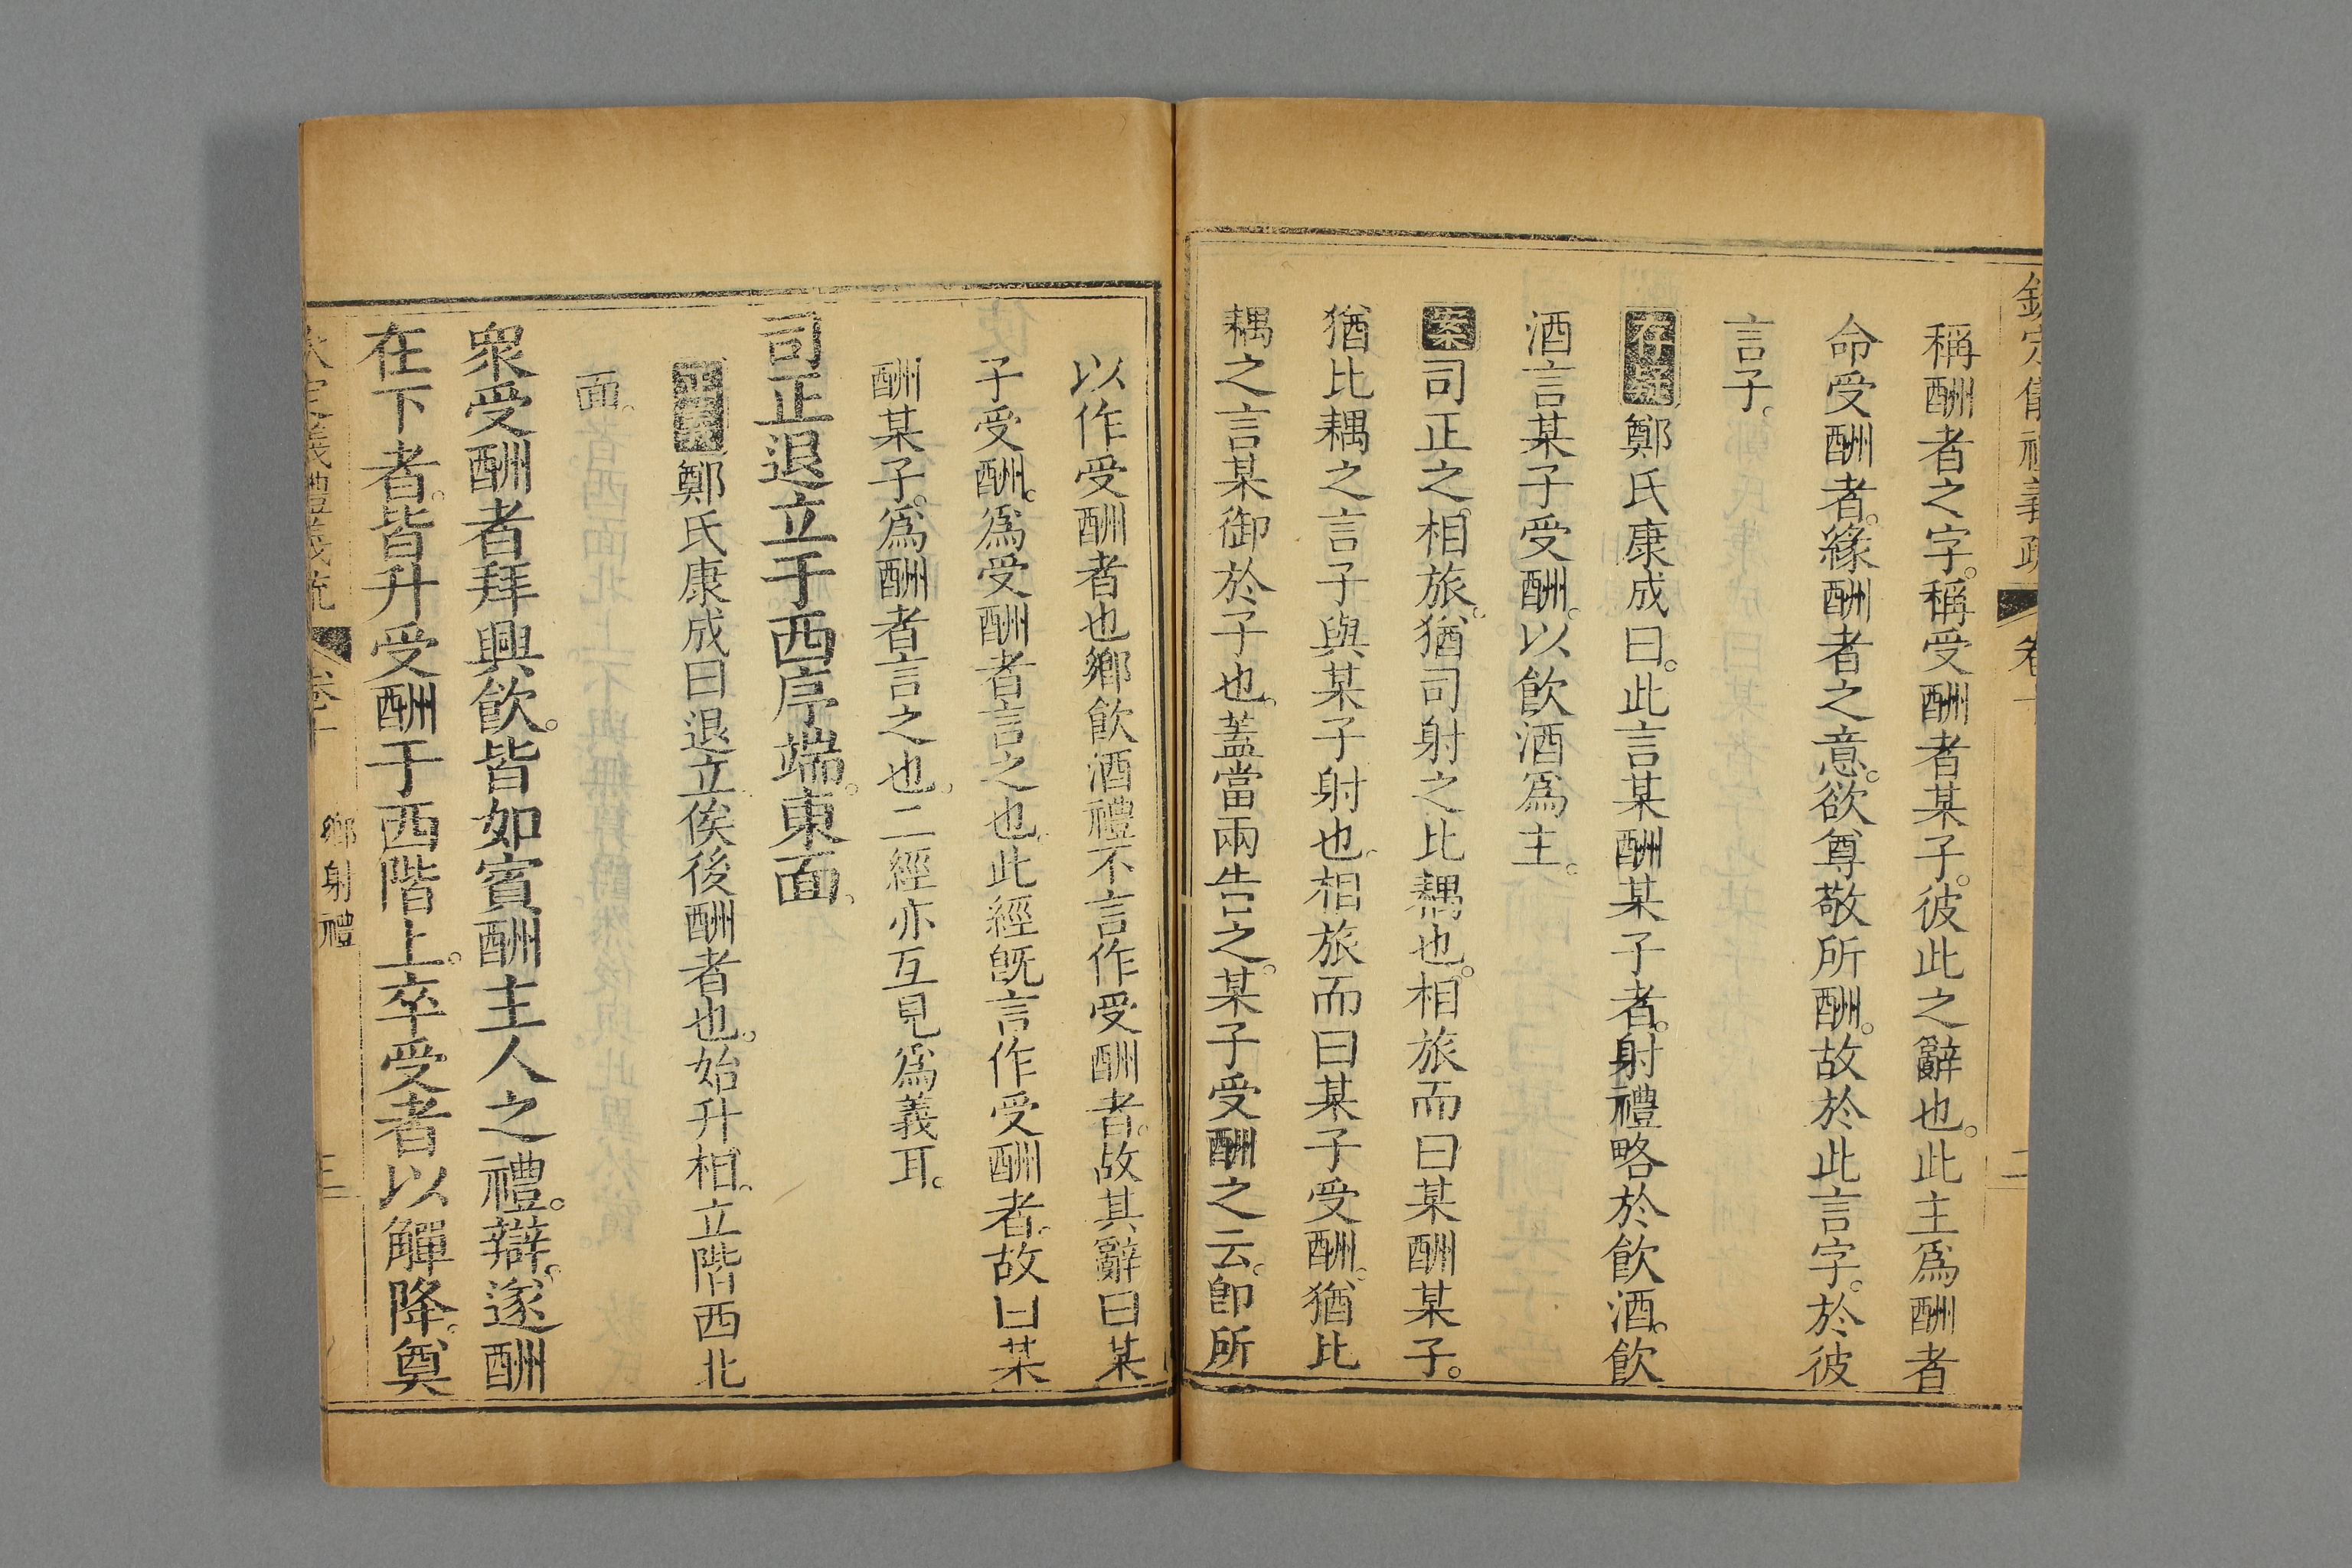 欽定儀禮義疏 卷十 二
稱酬者之字。稱受酬者某子。彼此之辭也。此主爲酬者
命受酬者。緣酬者之意。欲尊敬所酬。故於此言字。於彼
言子。
存疑鄭氏康成曰。此言某酬某子者。射禮略於飲酒。飲
酒言某子受酬。以飲酒爲主。
案司正之相旅。猶司射之比耦也。相旅而曰某酬某子。
猶比耦之言子與某子射也。相旅而曰某子受酬。猶比
耦之言某御於子也。蓋當兩告之。某子受酬之云。卽所
以作受酬者也鄉飲酒禮不言作受酬者。故其辭曰某
子受酬。爲受酬者言之也。此經旣言作受酬者。故曰某
酬某子。爲酬者言之也。二經亦互見爲義耳。
司正退立于西序端。東面。
鄭氏康成曰退立俟後酬者也。始升相。立階西北
面。
衆受酬者拜興飲。皆如賓酬主人之禮。辯。遂酬
在下者。皆升受酬于西階上。卒受者以觶降。奠
欽定義禮義疏 卷十 鄉射禮 三